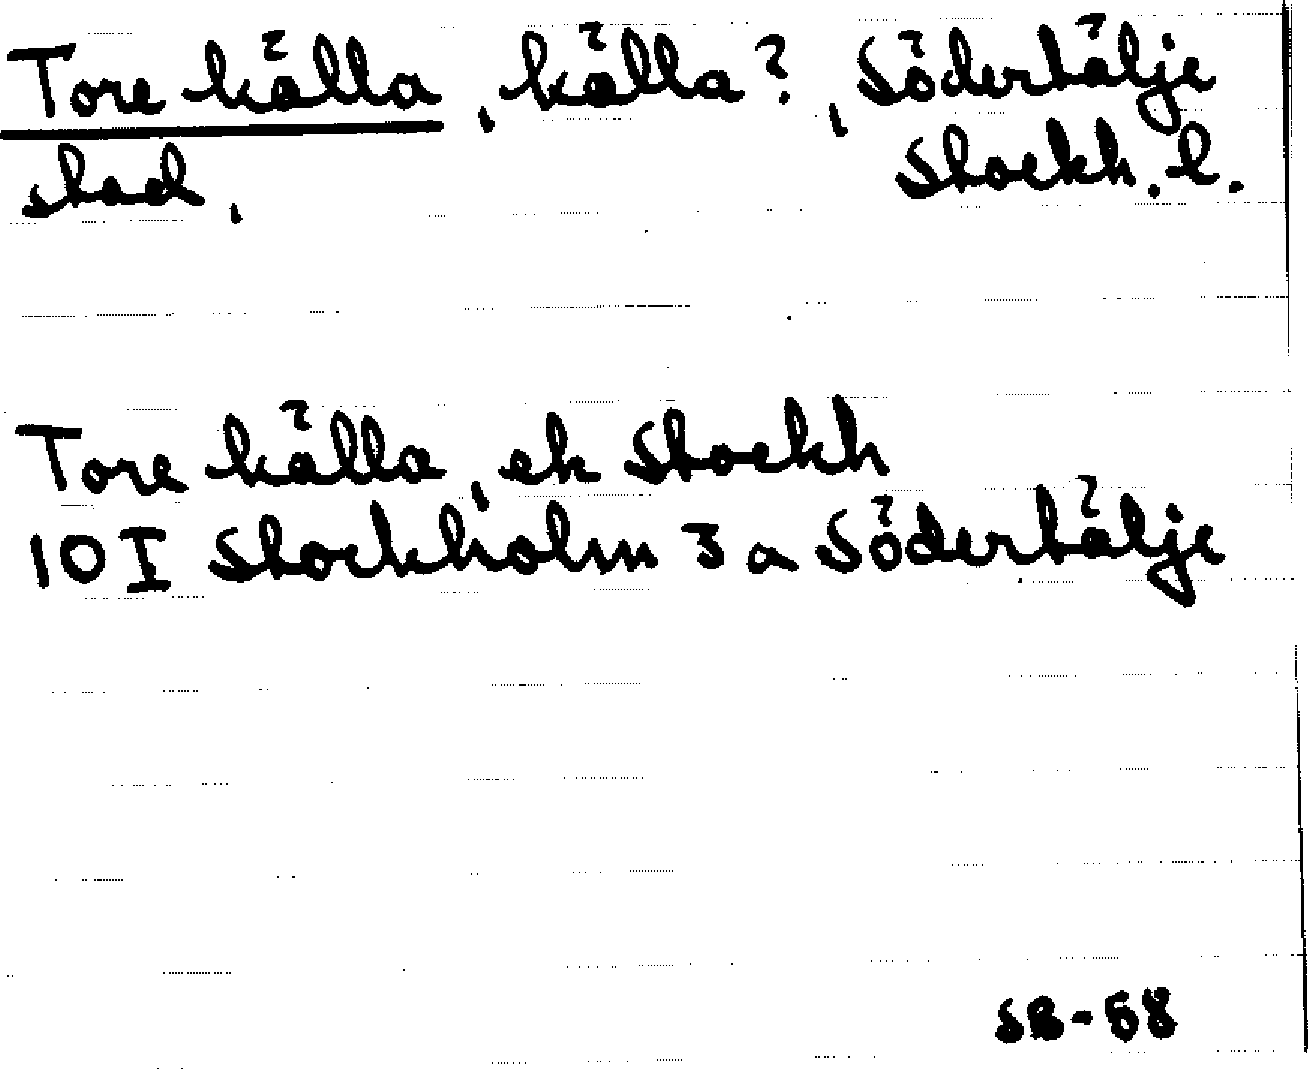 Tore källa, källa?, Södertälje
stad, Stockh. l.
Tore källa, ek Stockh
10I Stockholm 3 a Södertälje
SB-58